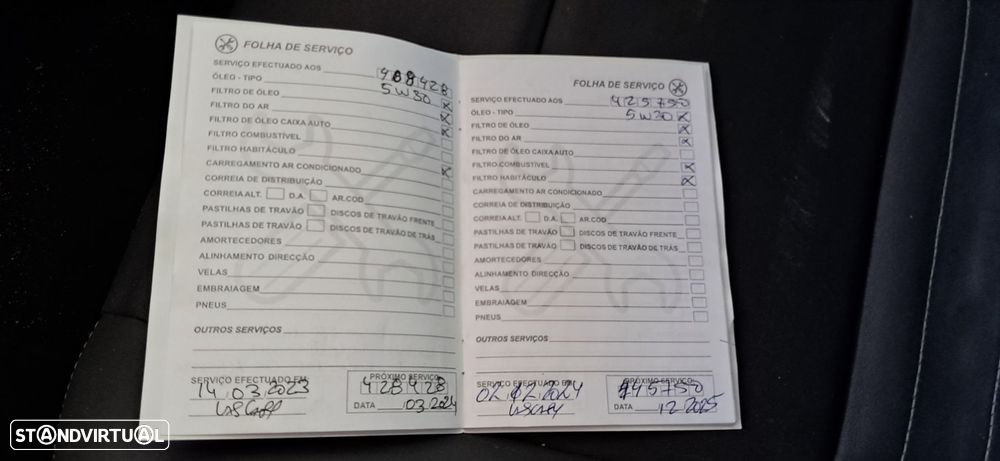 FOLHA DE SERVIÇO
SERVIÇO EFECTUADO AOS 408428
ÓLEO - TIPO 5W30
FILTRO DE ÓLEO X
FILTRO DO AR X
FILTRO DE ÓLEO CAIXA AUTO X
FILTRO COMBUSTÍVEL
FILTRO HABITÁCULO
CARREGAMENTO AR CONDICIONADO X
CORREIA DE DISTRIBUIÇÃO
CORREIA ALT. D.A. AR.COD
PASTILHAS DE TRAVÃO DISCOS DE TRAVÃO FRENTE
PASTILHAS DE TRAVÃO DISCOS DE TRAVÃO DE TRÁS
AMORTECEDORES
ALINHAMENTO DIRECÇÃO
VELAS
EMBRAIAGEM
PNEUS
OUTROS SERVIÇOS
SERVIÇO EFECTUADO EM: 14.03.2023
PRÓXIMO SERVIÇO
428428
DATA 03.2024
FOLHA DE SERVIÇO
SERVIÇO EFECTUADO AOS 425750
ÓLEO - TIPO 5W30 X
FILTRO DE ÓLEO X
FILTRO DO AR X
FILTRO DE ÓLEO CAIXA AUTO
FILTRO COMBUSTÍVEL X
FILTRO HABITÁCULO X
CARREGAMENTO AR CONDICIONADO
CORREIA DE DISTRIBUIÇÃO
CORREIA ALT. D.A. AR.COD
PASTILHAS DE TRAVÃO DISCOS DE TRAVÃO FRENTE
PASTILHAS DE TRAVÃO DISCOS DE TRAVÃO DE TRÁS
AMORTECEDORES
ALINHAMENTO DIRECÇÃO
VELAS
EMBRAIAGEM
PNEUS
OUTROS SERVIÇOS
SERVIÇO EFECTUADO EM
PRÓXIMO SERVIÇO
445750
DATA 12 2025
STANDVIRTUAL